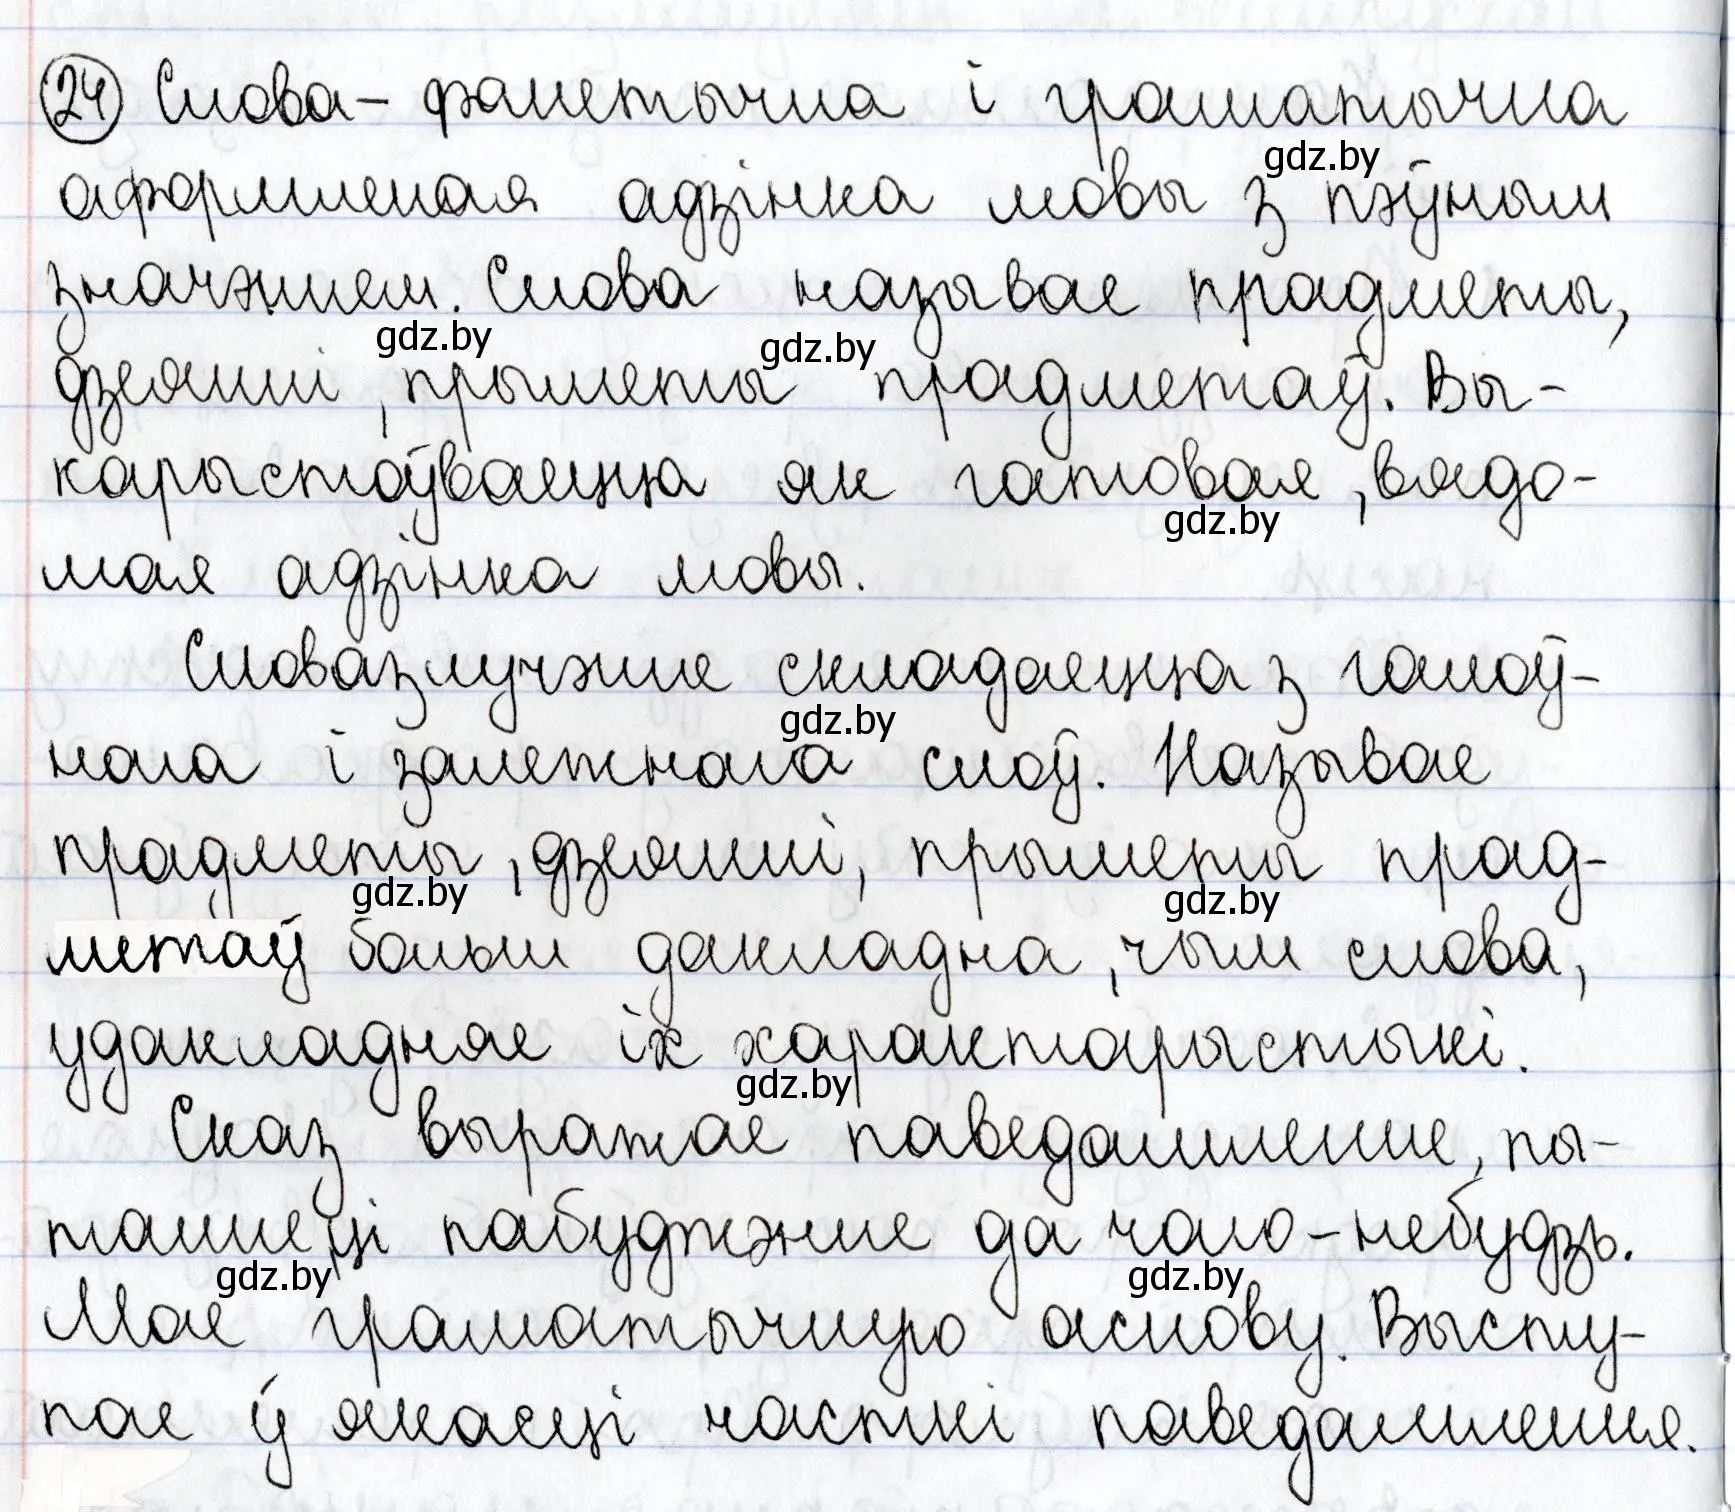 24 Слова – фанетычна і граматычна
gdz.by
аформленая адзінка мовы з пэўным
значэннем. Слова называе прадметы,
gdz.by gdz.by
дзеянні, прыметы прадметаў. Вы-
карыстоўваецца як гатовая, вядо-
gdz.by
мая адзінка мовы.
Словазлучэнне складаецца з галоў-
gdz.by
нага і залежнага слоў. Называе
прадметы, дзеянні, прыметы прад-
gdz.by gdz.by
метаў больш дакладна, чым слова,
удакладняе іх характарыстыкі.
gdz.by
Сказ выражае паведамленне, пы-
танне, ці пабуджэнне да чаго-небудзь.
gdz.by gdz.by
Мае граматычную аснову. Высту-
пае ў якасці часткі паведамлення.